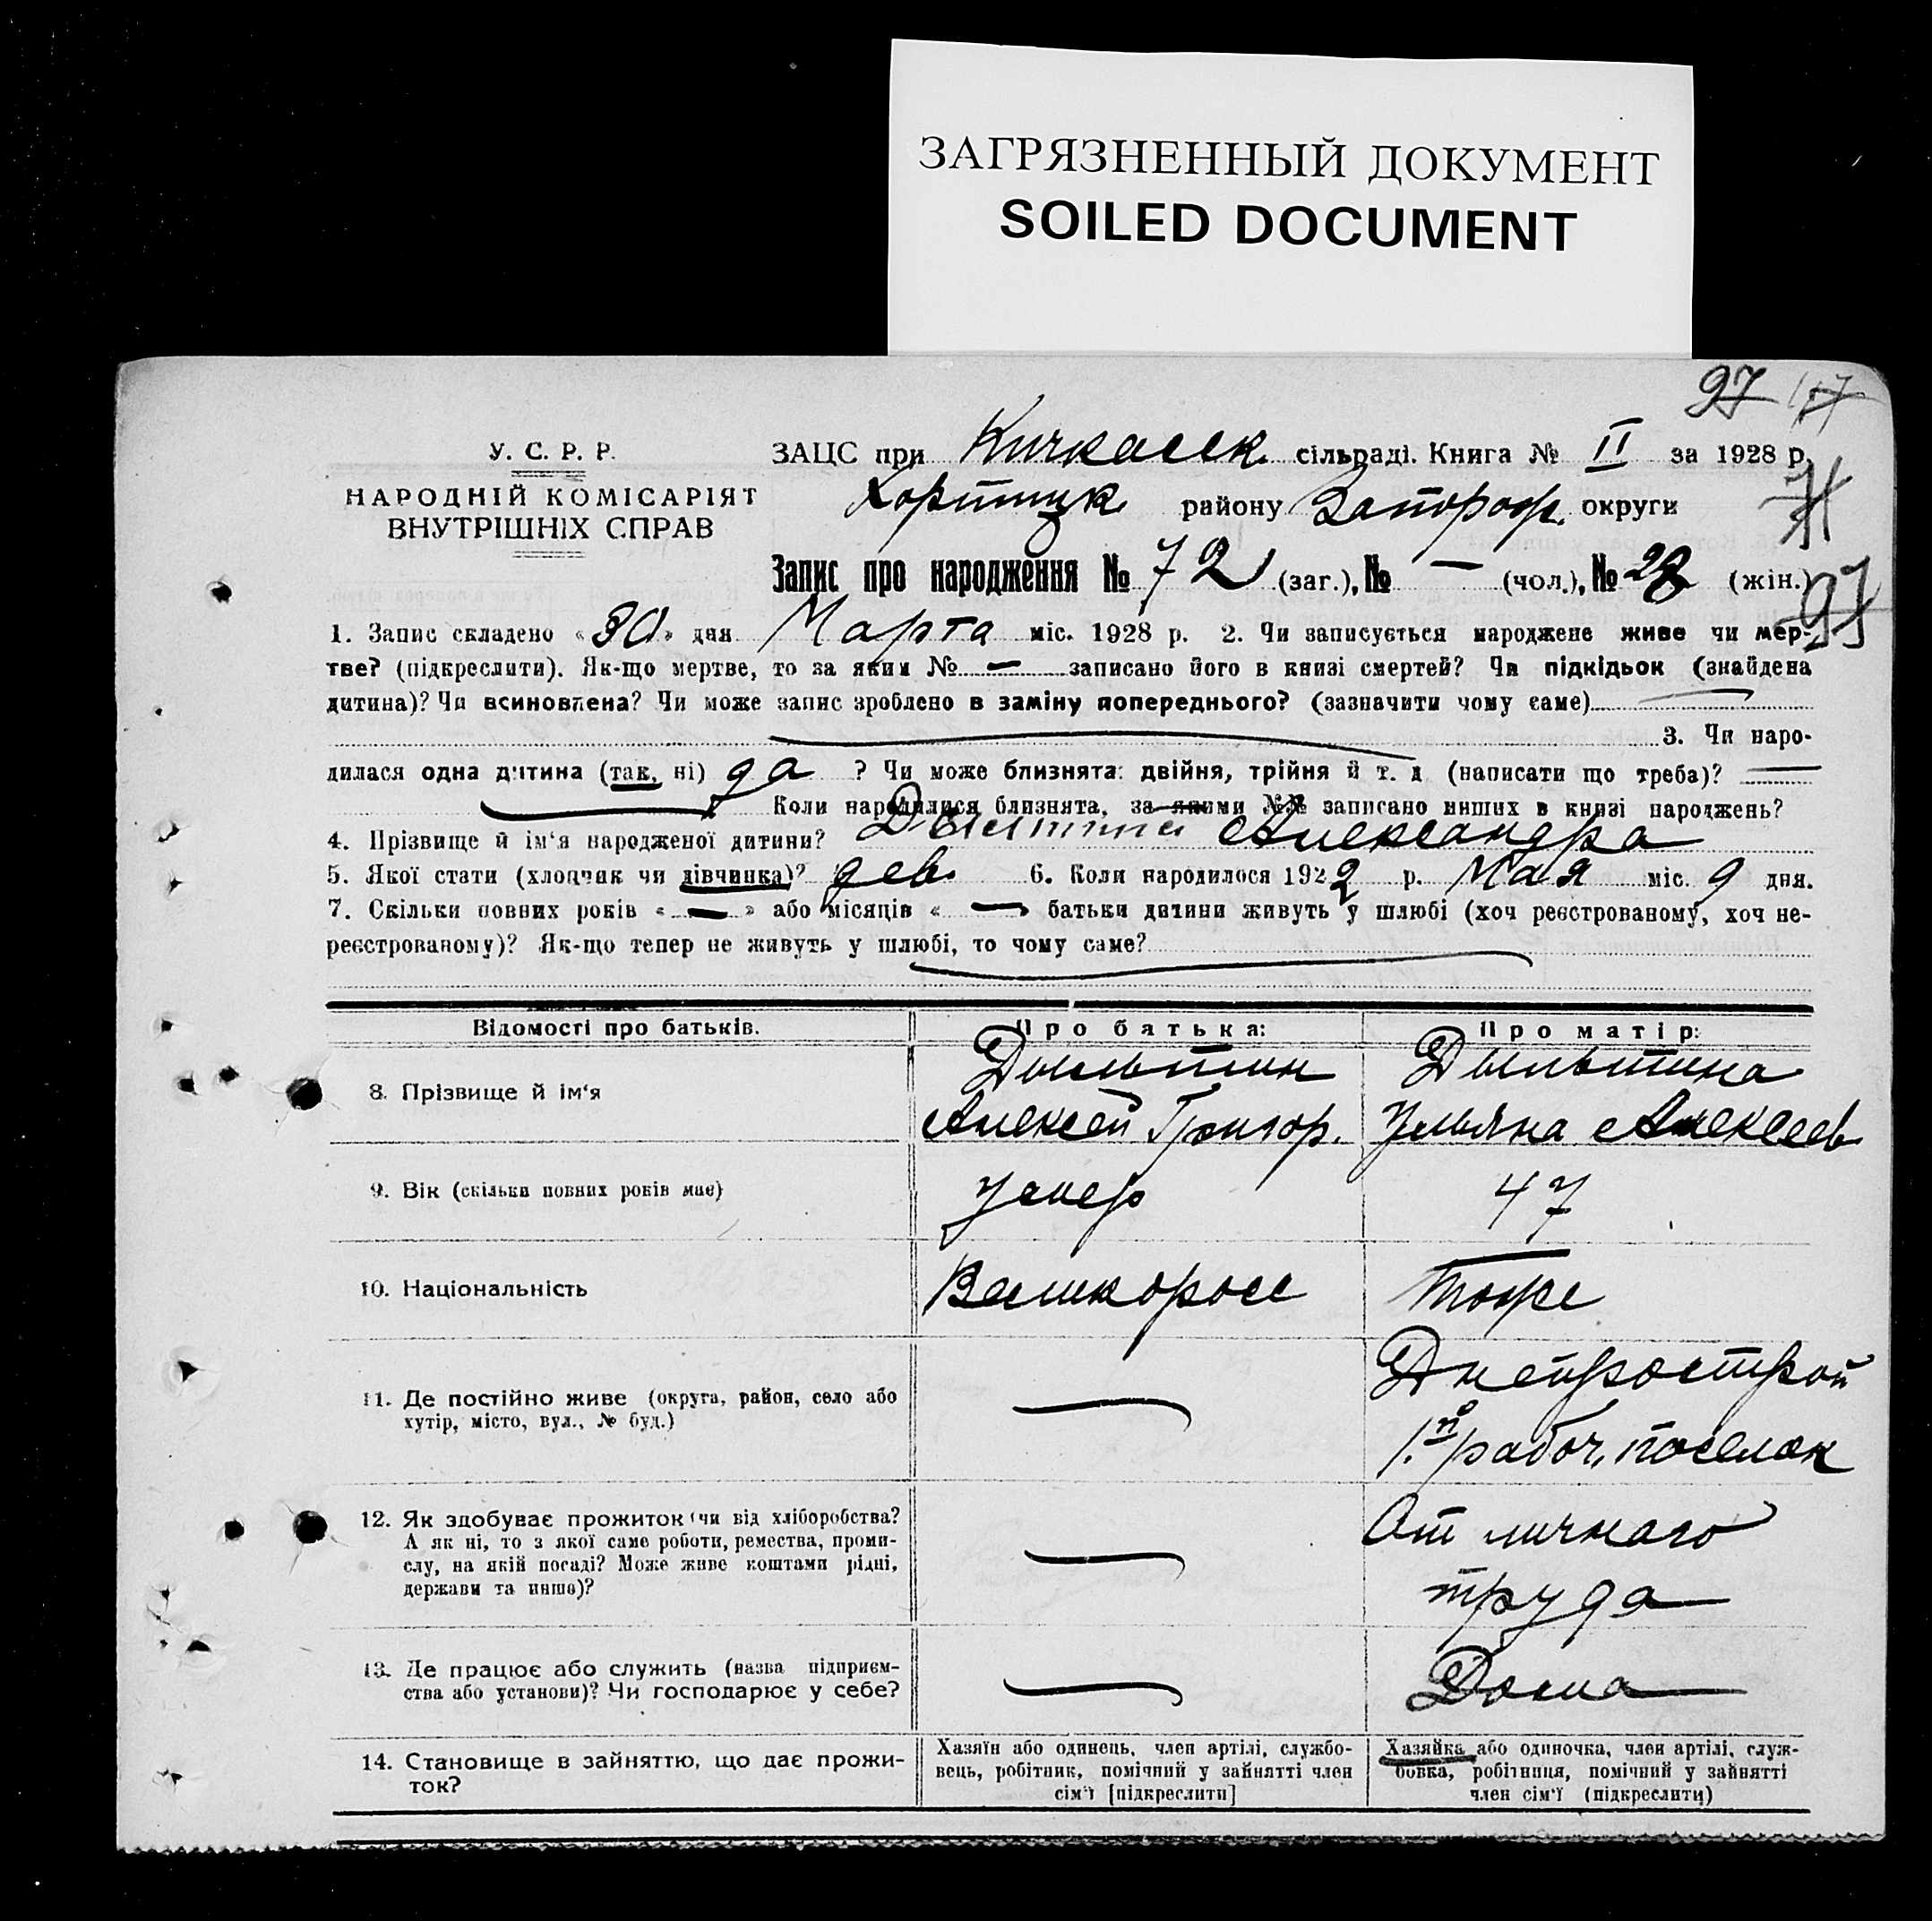 ЗАГРЯЗНЕННЫЙ ДОКУМЕНТ
SOILED DOCUMENT
97
У. С. Р. Р.
НАРОДНІЙ КОМІСАРІЯТ
ВНУТРІШНІХ СПРАВ
ЗАЦС при Кичкасск. сільраді. Книга № II за 1928 р.
Хортицк. району Запорож. округи
Запис про народження № 72 (заг.), № — (чол.), № 28 (жін.)
97
1. Запис складено «30» дня Марта міс. 1928 р. 2. Чи записується народжене живе чи мер-
тве? (підкреслити). Як-що мертве, то за яким № — записано його в книзі смертей? Чи підкідьок (знайдена
дитина)? Чи всиновлена? Чи може запис зроблено в заміну попереднього? (зазначити чому саме)
3. Чи наро-
дилася одна дитина (так, ні) да ? Чи може близнята: двійня, трійня й т. д (написати що треба)? —
Коли народилися близнята, за якими №№ записано инших в книзі народжень?
4. Прізвище й ім‘я народженої дитини? Александра
5. Якої стати (хлопчик чи дівчинка)? дев. 6. Коли народилося 1922 р. Мая міс. 9 дня.
7. Скільки повних років «—» або місяців «—» батьки дитини живуть у шлюбі (хоч реєстрованому, хоч не-
реєстрованому)? Як-що тепер не живуть у шлюбі, то чому саме?
Відомості про батьків. Про батька: Про матір:
8. Прізвище й ім‘я
Алексей Григор. Ульяна Алексеев
9. Вік (скільки повних років має) умер 47
10. Національність Великоросс тоже
11. Де постійно живе (округа, район, село або
хутір, місто, вул., № буд.) — Днепрострой
1й рабоч. поселок
12. Як здобуває прожиток (чи від хліборобства?
А як ні, то з якої саме роботи, ремества, проми-
слу, на якій посаді? Може живе коштами рідні,
держави та инше)? — От личного
труда
13. Де працює або служить (назва підприєм-
ства або установи)? Чи господарює у себе? — Дома
14. Становище в зайняттю, що дає прожи-
ток?
Хазяїн або одинець, член артілі, службо-
вець, робітник, помічний у зайнятті член
сім‘ї [підкреслити]
Хазяйка або одиночка, член артілі, служ-
бовка, робітниця, помічний у зайнятті
член сім‘ї (підкреслити)